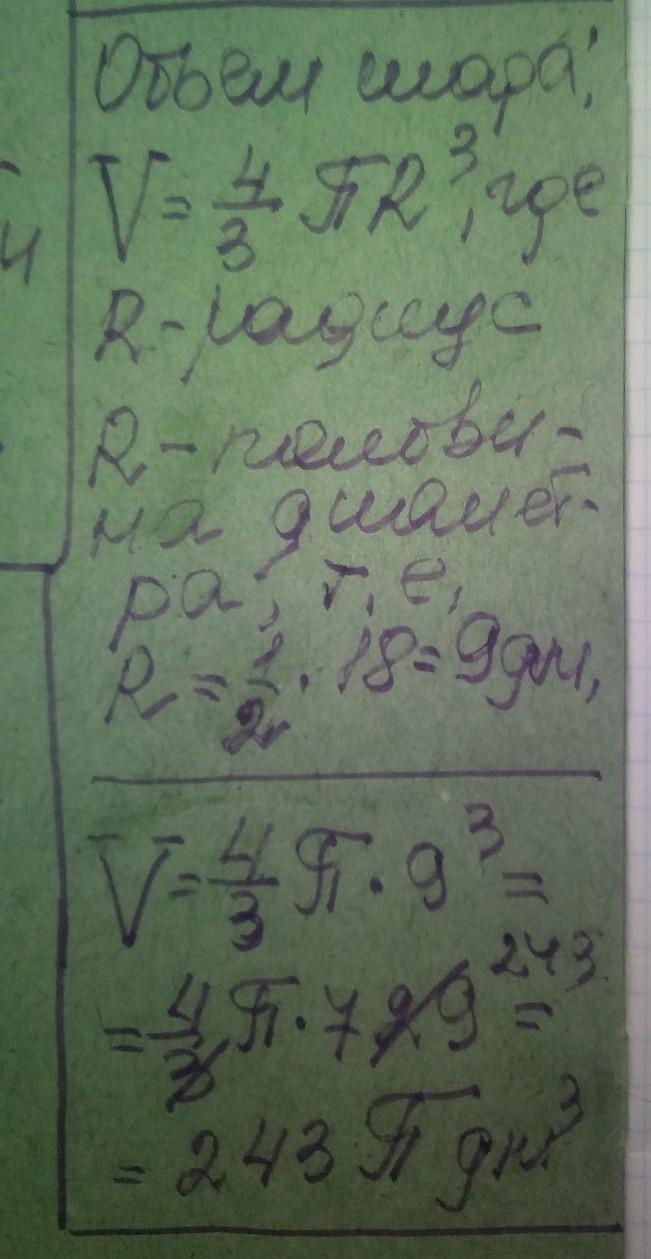 Объем шара:
V = 4/3 ПR³, где
R - радиус
R - полови-
на диамет-
ра, т.е.
R = 1/2 · 18 = 9 дм,
V = 4/3 П · 9³ =
= 4/3 П · 729 243 =
= 243 П дм³
и